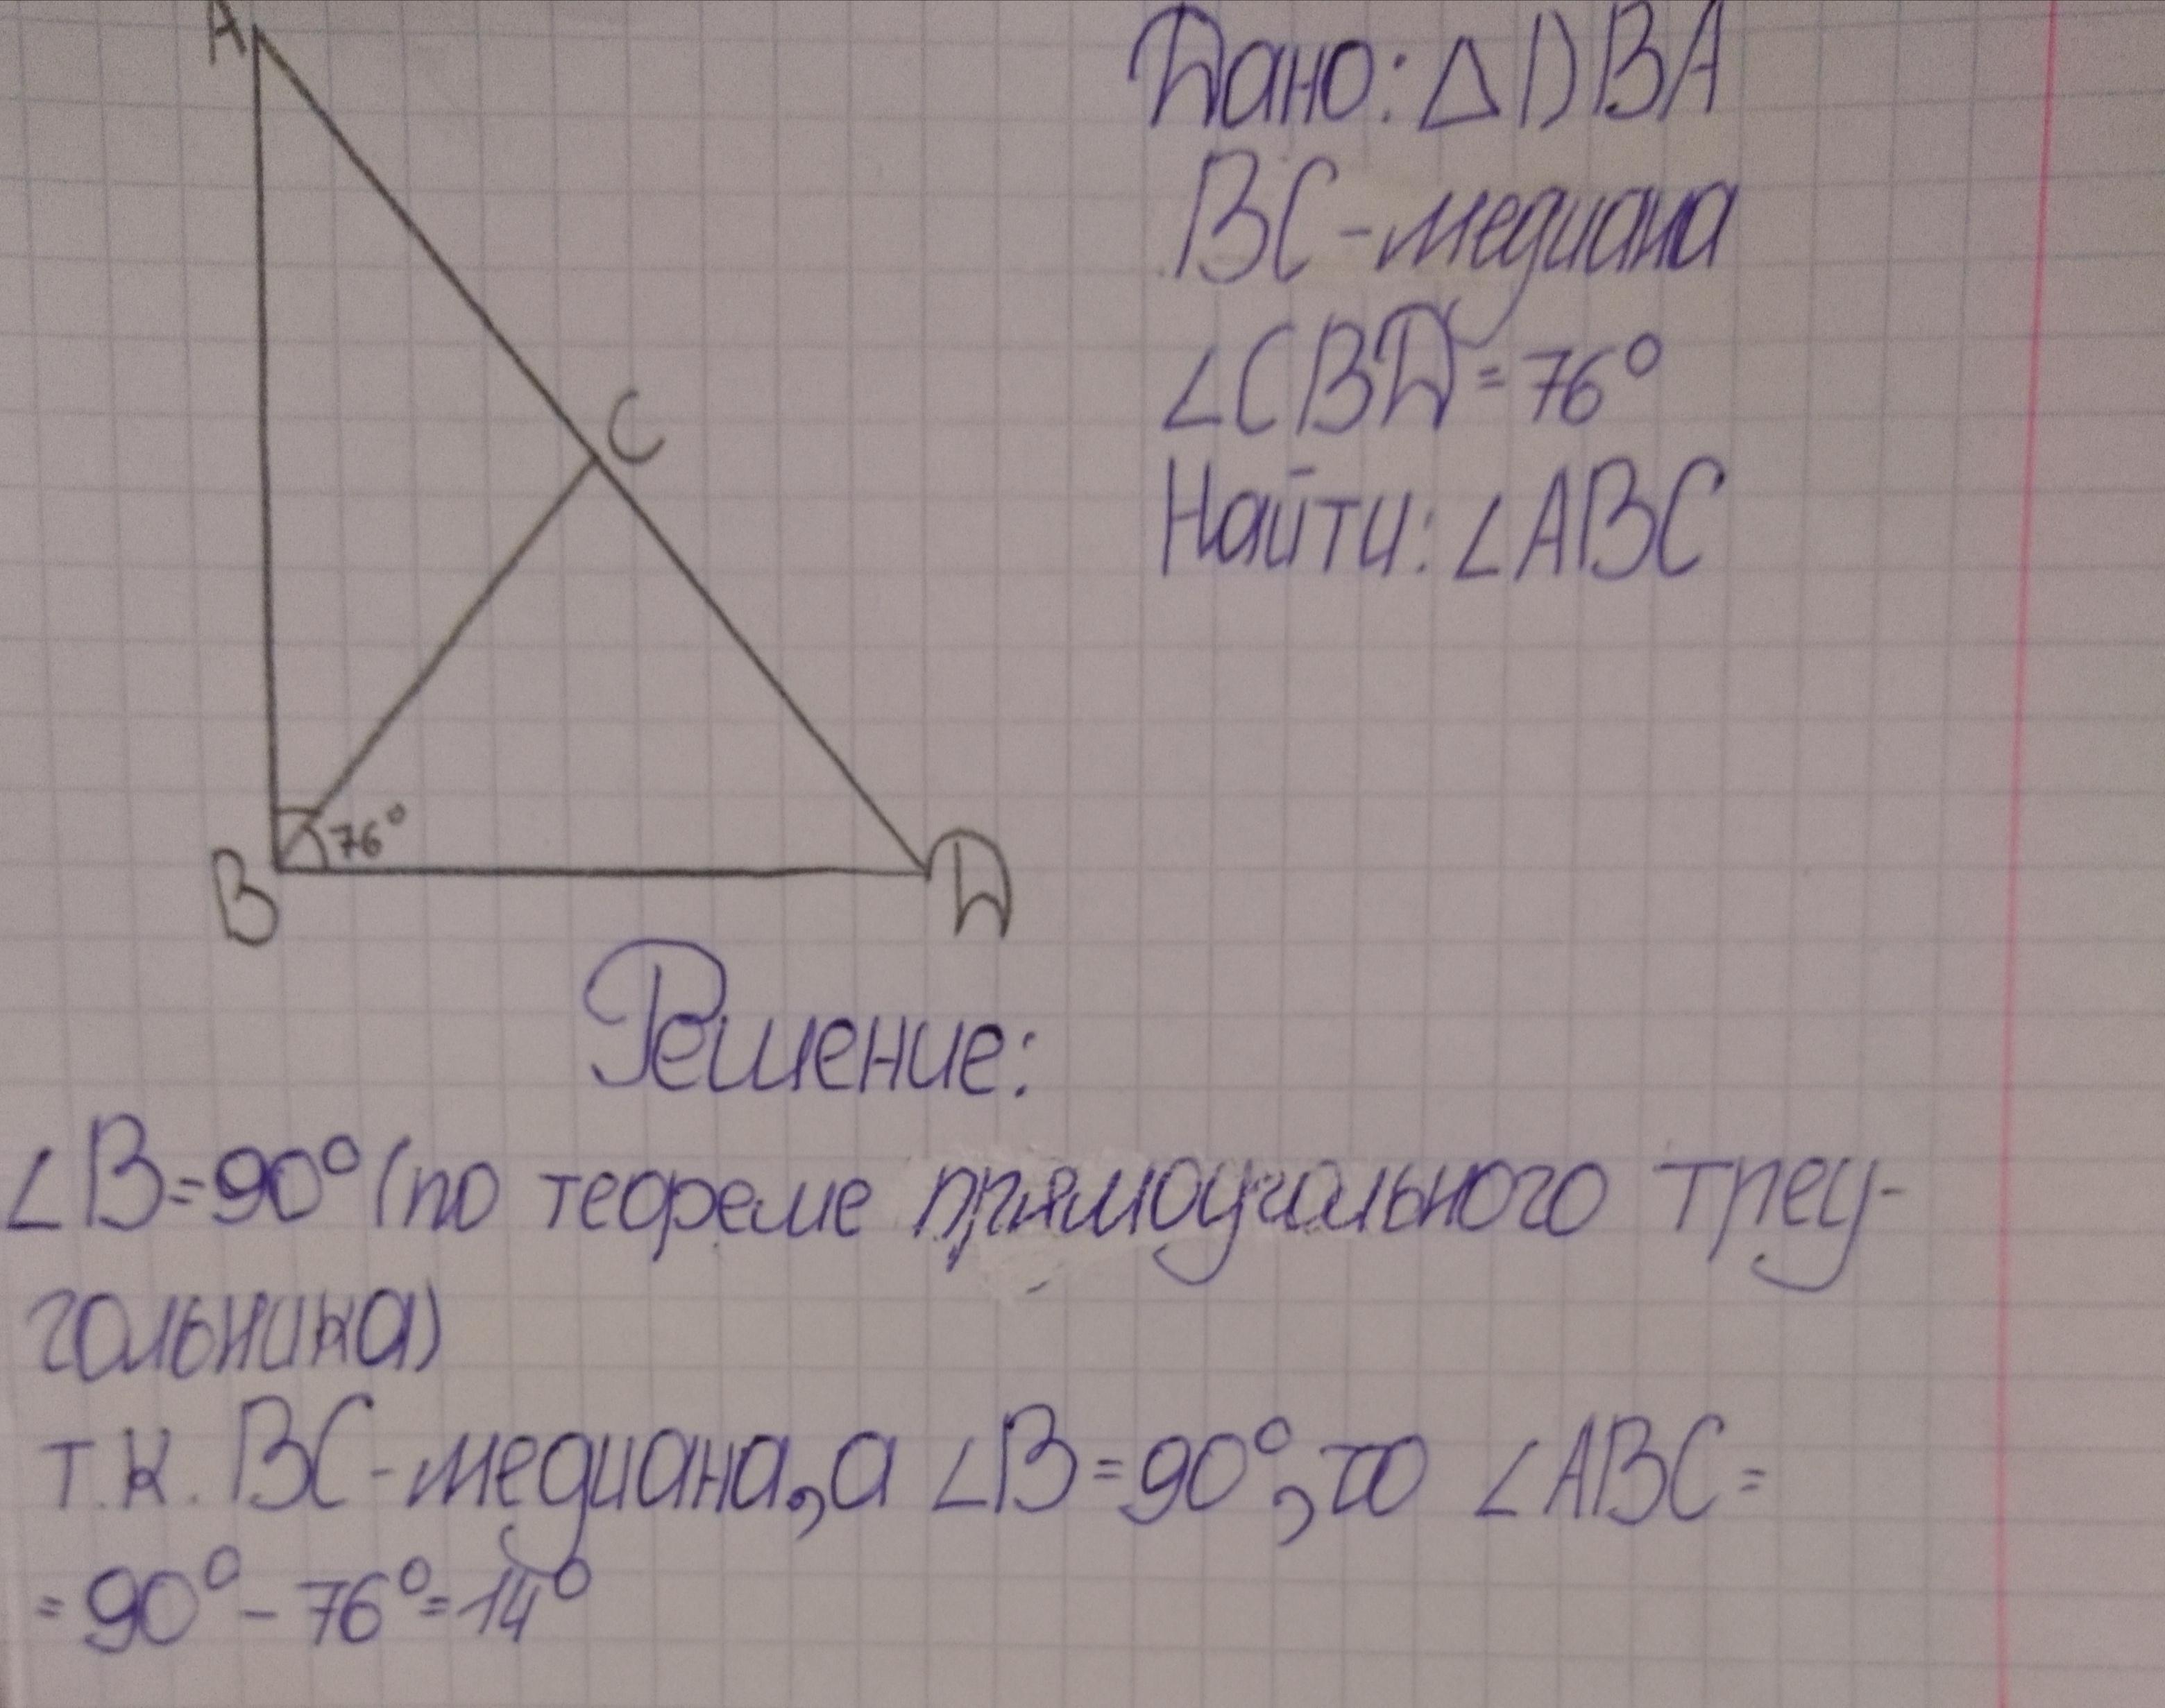 A
C
B
76°
Д
Дано: △DBA
BC-медиана
∠CBД=76°
Найти: ∠ABC
Решение:
∠B=90° (по теореме прямоугольного треу-
гольника)
т.к. BC-медиана, а ∠B=90°, то ∠ABC=
=90°-76°=14°